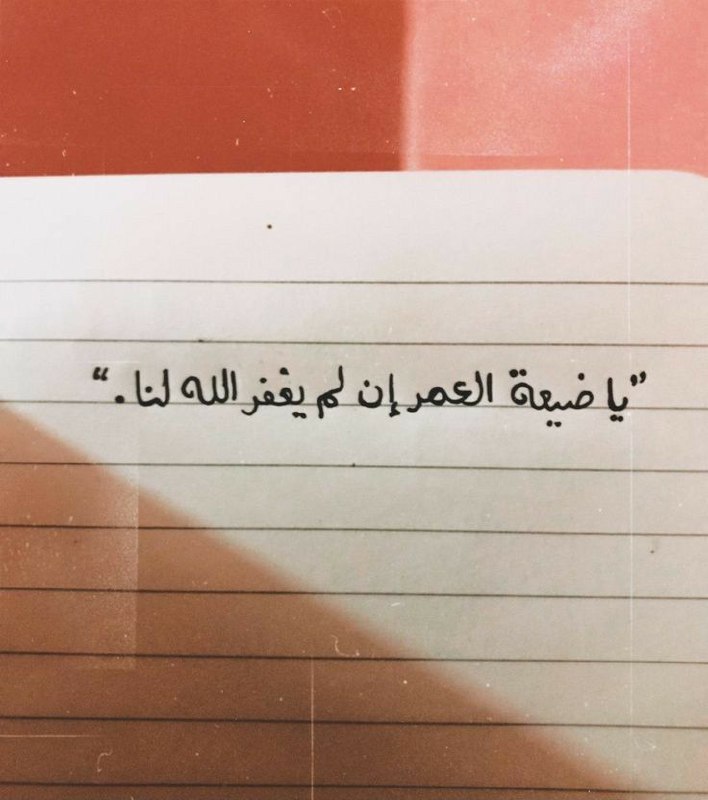 "يا ضيعة العمر إن لم يغفر الله لنا."